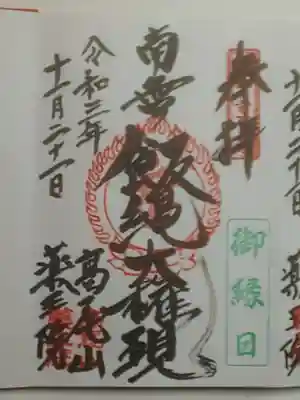 奉拝
御縁日
南無
飯縄大権現
令和三年
十一月二十一日
高尾山
薬王院